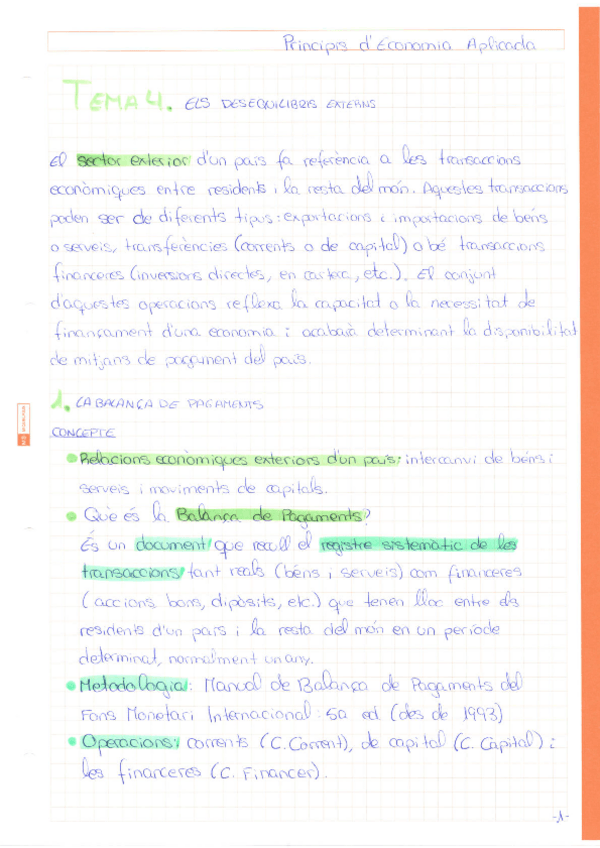 Principis d'Economia Aplicada
TEMA 4. ELS DESEQUILIBRIS EXTERNS
El sector exterior d'un país fa referència a les transaccions
econòmiques entre residents i la resta del món. Aquestes transaccions
poden ser de diferents tipus: exportacions i importacions de béns
o serveis, transferències (corrents o de capital) o bé transaccions
financeres (inversions directes, en cartera, etc.). El conjunt
d'aquestes operacions reflexa la capacitat o la necessitat de
finançament d'una economia i acabarà determinant la disponibilitat
de mitjans de pagament del país.
1. LA BALANÇA DE PAGAMENTS
CONCEPTE
• Relacions econòmiques exteriors d'un país: intercanvi de béns i
serveis i moviments de capitals.
• Què és la Balança de Pagaments?
És un document que recull el registre sistemàtic de les
transaccions tant reals (béns i serveis) com financeres
(accions, bons, dipòsits, etc.) que tenen lloc entre els
residents d'un país i la resta del món en un període
determinat, normalment un any.
• Metodologia: Manual de Balança de Pagaments del
Fons Monetari Internacional: 5a ed (des de 1993)
• Operacions: corrents (C. Corrent), de capital (C. Càpital) i
les financeres (C. Financer).
-1-